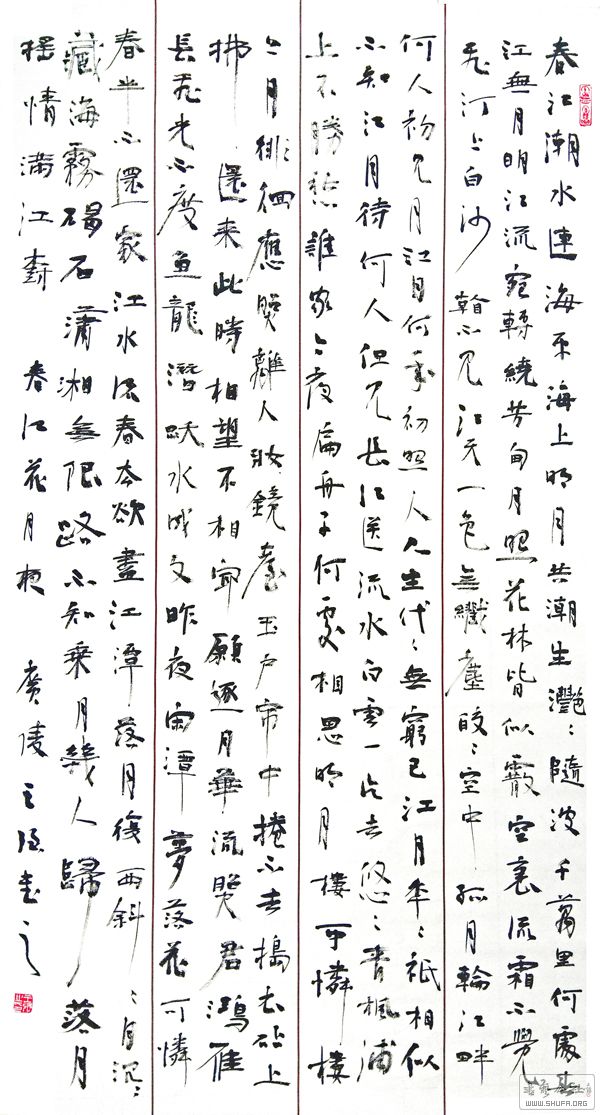 春江潮水連海平海上明月共潮生灩〻隨波千萬里何處春
江無月明江流宛轉繞芳甸月照花林皆似霰空裏流霜不覺
飛汀上白沙看不見江天一色無纖塵皎〻空中孤月輪江畔
何人初見月江月何年初照人人生代〻無窮已江月年〻祇相似
不知江月待何人但見長江送流水白雲一片去悠〻青楓浦
上不勝愁誰家今夜扁舟子何處相思明月樓可憐樓
上月徘徊應照離人妝鏡臺玉户帘中捲不去搗衣砧上
拂還來此時相望不相聞願逐月華流照君鴻雁
長飛光不度魚龍潛躍水成文昨夜閒潭夢落花可憐
春半不還家江水流春去欲盡江潭落月復西斜〻月沉〻
藏海霧碣石瀟湘無限路不知乘月幾人歸落月
搖情滿江樹 春江花月夜 廣陵之書之
WWW.SHUFA.ORG